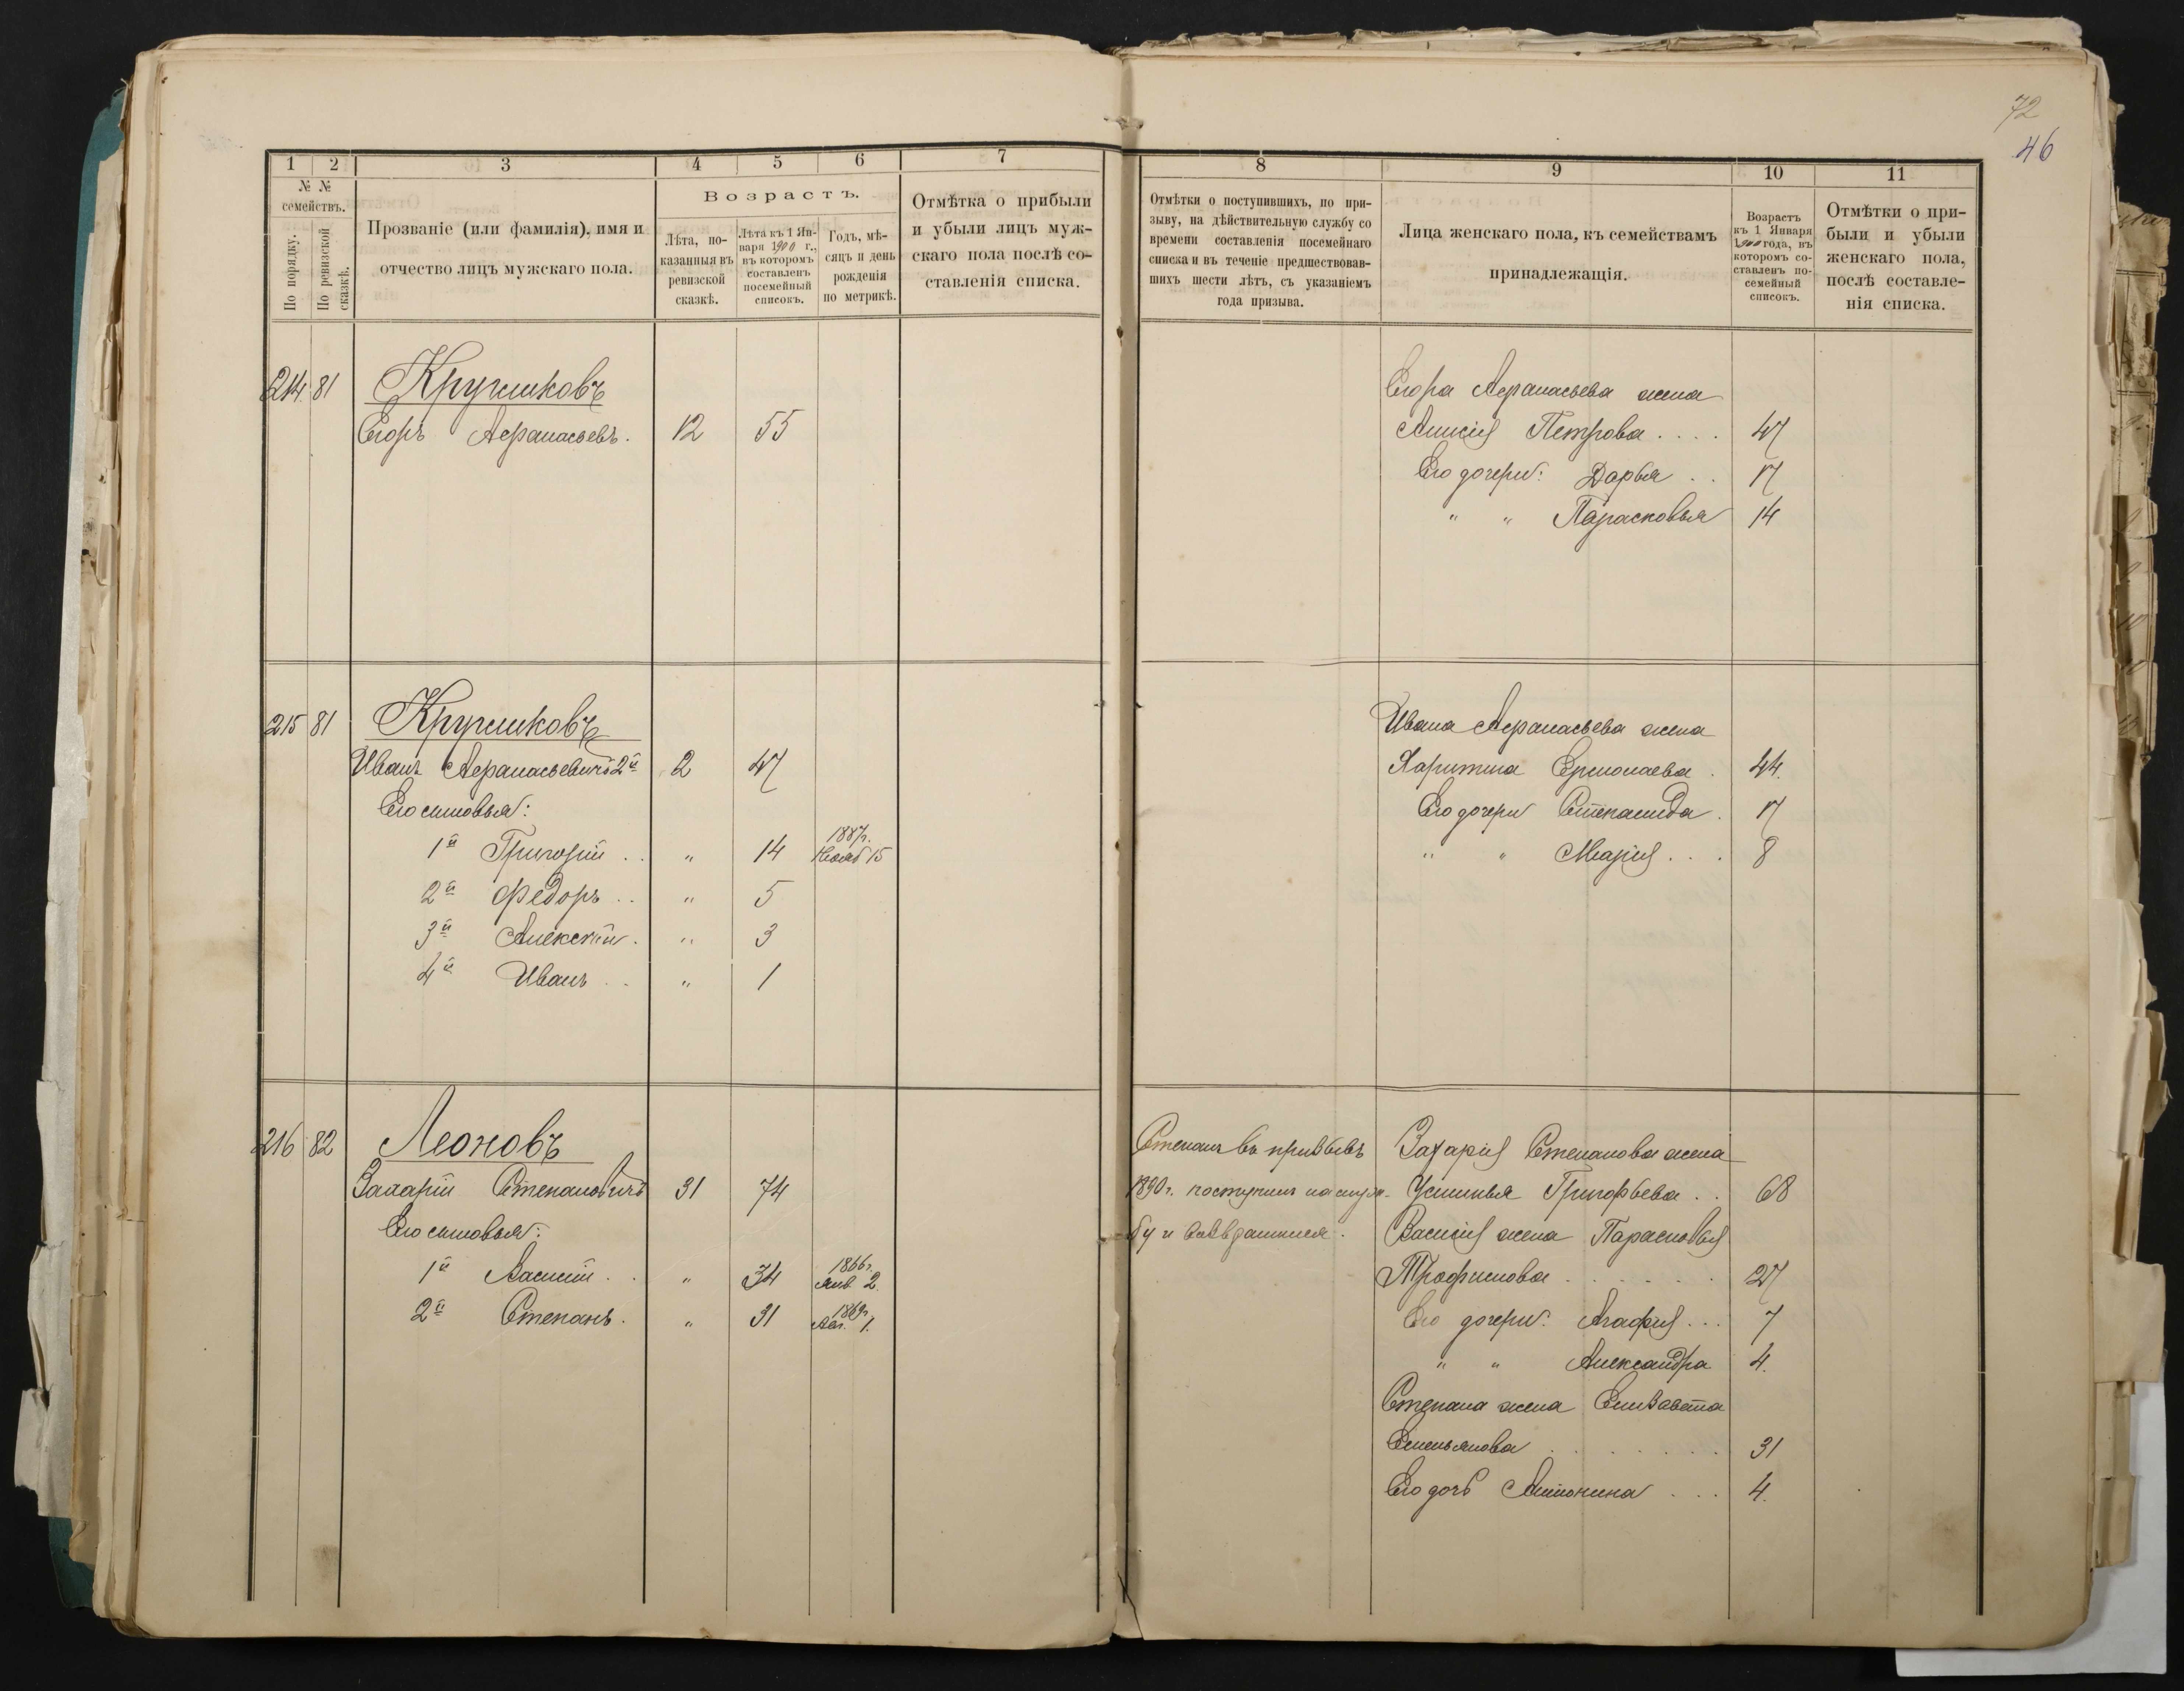 72
46
1 2 3 4 5 6 7
№ №
семействъ.
По порядку.
По ревизской
сказкѣ.
Прозваніе (или фамилія), имя и
отчество лицъ мужскаго пола.
Возрастъ.
Лѣта, по-
казанныя въ
ревизской
сказкѣ.
Лѣта къ 1 Ян-
варя 1900 г.,
въ которомъ
составленъ
посемейный
списокъ.
Годъ, мѣ-
сяцъ и день
рожденія
по метрикѣ.
Отмѣтка о прибыли
и убыли лицъ муж-
скаго пола послѣ со-
ставленія списка.
8 9 10 11
Отмѣтки о поступившихъ, по при-
зыву, на дѣйствительную службу со
времени составленія посемейнаго
списка и въ теченіе предшествовав-
шихъ шести лѣтъ, съ указаніемъ
года призыва.
Лица женскаго пола, къ семействамъ
принадлежащія.
Возрастъ
къ 1 Января
1900 года, въ
которомъ со-
ставленъ по-
семейный
списокъ.
Отмѣтки о при-
были и убыли
женскаго пола,
послѣ составле-
нія списка.
214 81 Кружиковъ
Егоръ Афанасьевъ. 12 55
Егора Афанасьева жена
Анисія Петрова .... 47
Его дочери: Дарья .. 17
" " Парасковья 14
215 81 Кружиковъ
Иванъ Афанасьевичъ 2й 2 47
Его сыновья:
1й Григорій .. " 14 1887г. Нояб 15
2й Федоръ .. " 5
3й Алексѣй . " 3
4й Иванъ .. " 1
Ивана Афанасьева жена
Харитина Ермолаева . 44.
Его дочери Степанида . 17
" " Марія ... 8
216 82 Леоновъ
Захарій Степановичъ 31 74
Его сыновья:
1й Василій .. " 34 1866г. Янв 2.
2й Степанъ . " 31 1869г. Авг. 1.
Степанъ въ призывъ
1890 г. поступилъ на служ-
бу и
Захарія Степанова жена
Устинья Григорьева .. 68
Василія жена Парасковья
Трофимова ...... 27
Его дочери: Агафія ... 7
" " Александра 4.
Степана жена Елизавета
Емельянова ....... 31
Его дочь Антонина ... 4.